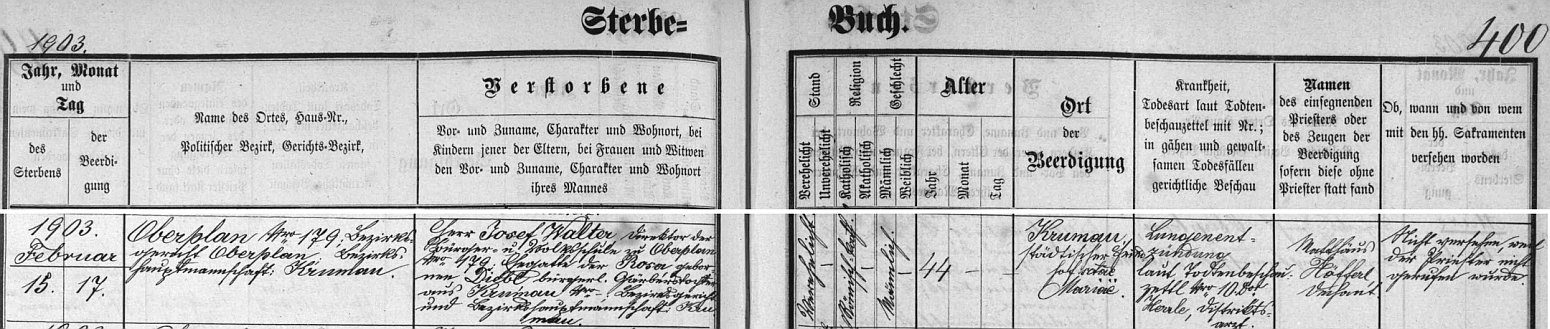 Sterbe=
Buch.
1903.
400
Jahr, Monat
und
Tag
des
Sterbens
der
Beerdi-
gung
Name des Ortes, Haus-Nr.,
Politischer Bezirk, Gerichts-Bezirk,
Verstorbene
Vor- und Zuname, Charakter und Wohnort, bei
Kindern jener der Eltern, bei Frauen und Witwen
den Vor- und Zuname, Charakter und Wohnort
ihres Mannes
Stand
Verehelicht
Unverehelicht
Religion
Katholisch
Akatholisch
Geschlecht
Männlich
Weiblich
Alter
Jahr
Monat
Tag
Ort
der
Beerdigung
Krankheit,
Todesart laut Todten-
beschauzettel mit Nr.;
in gähen und gewalt-
samen Todesfällen
gerichtliche Beschau
Namen
des einsegnenden
Priesters oder
des Zeugen der
Beerdigung
sofern diese ohne
Priester statt fand
Ob, wann und von wem
mit den hh. Sakramenten
versehen worden
1903.
Februar
15. 17.
Oberplan Nro 179; Bezirks-
gericht Oberplan, Bezirks-
hauptmannschaft: Krumau.
Herr Josef Walter, Direktor der
Bürger- u. Volksschule zu Oberplan
Nro 179, Ehegatte der Rosa gebor-
nen bürgerl.
aus Krumau Nro -, Bezirksgericht
und Bezirkshauptmannschaft: Kru-
mau.
Verehelicht
Männlich
44 -
Krumau,
städtischer
Mariae.
Lungenent-
zündung
laut Todenbeschau-
zettl Nro 10 Dor
Distrikts-
arzt.
Matthäus
Dechant
Nicht versehen, weil
der Priester nicht
gerufen wurde.